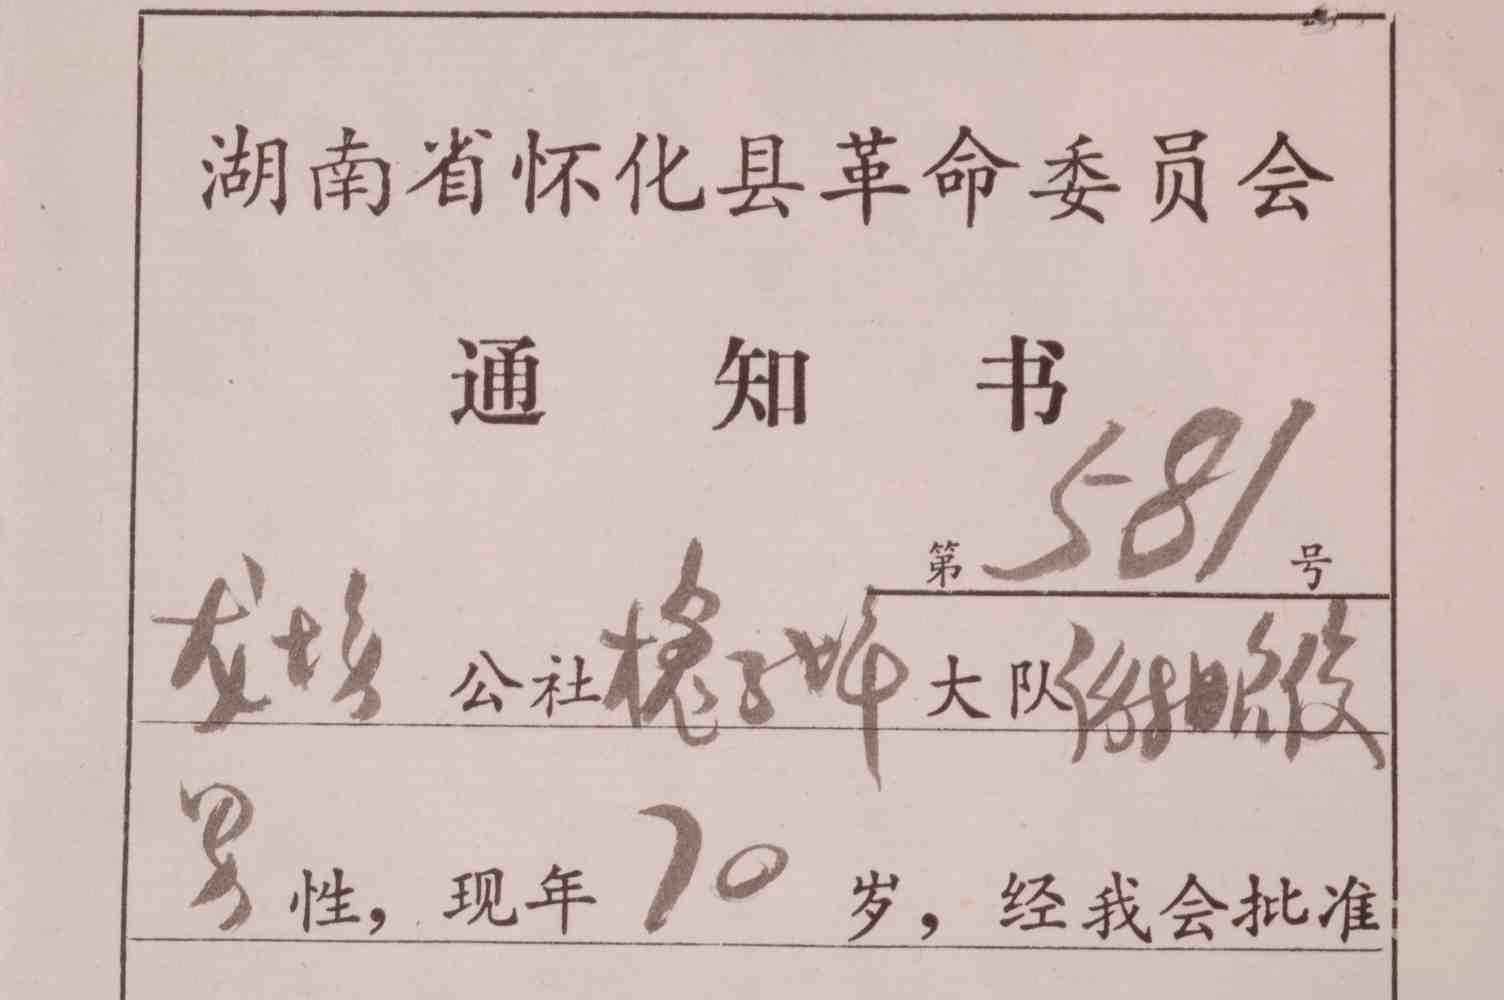 湖南省怀化县革命委员会
通知书
第581号
公社 大队
男性，现年70岁，经我会批准